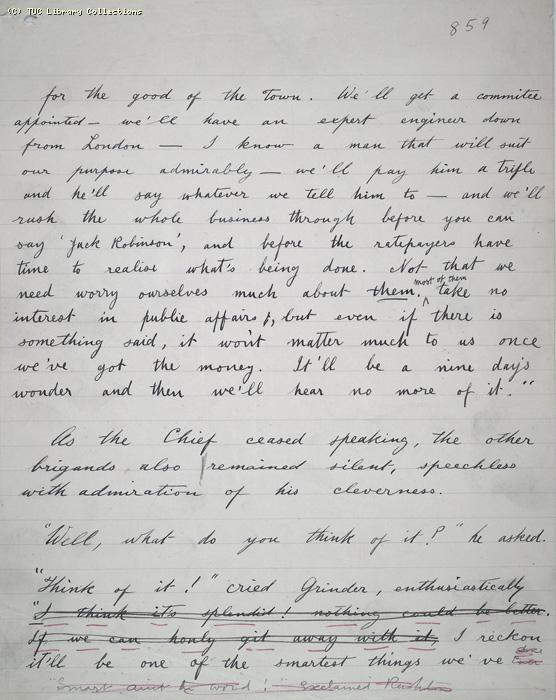 (C) TUC Library Collections
859
for the good of the Town. We'll get a commitee
appointed – we'll have an expert engineer down
from London — I know a man that will suit
our purpose admirably – we'll pay him a trifle
and he'll say whatever we tell him to – and we'll
rush the whole business through before you can
say 'Jack Robinson', and before the ratepayers have
time to realise what's being done. Not that we
need worry ourselves much about them. most of them take no
interest in public affairs, but even if there is
something said, it won't matter much to us once
we've got the money. It'll be a nine day's
wonder and then we'll hear no more of it."
As the Chief ceased speaking, the other
brigands also remained silent, speechless
with admiration of his cleverness.
"Well, what do you think of it?" he asked.
"Think of it!" cried Grinder, enthusiastically
"I think it's splendid! nothing could be better.
If we can honly git away with it, I reckon
it'll be one of the smartest things we've
"Smart aint the word!" exclaimed Rushton